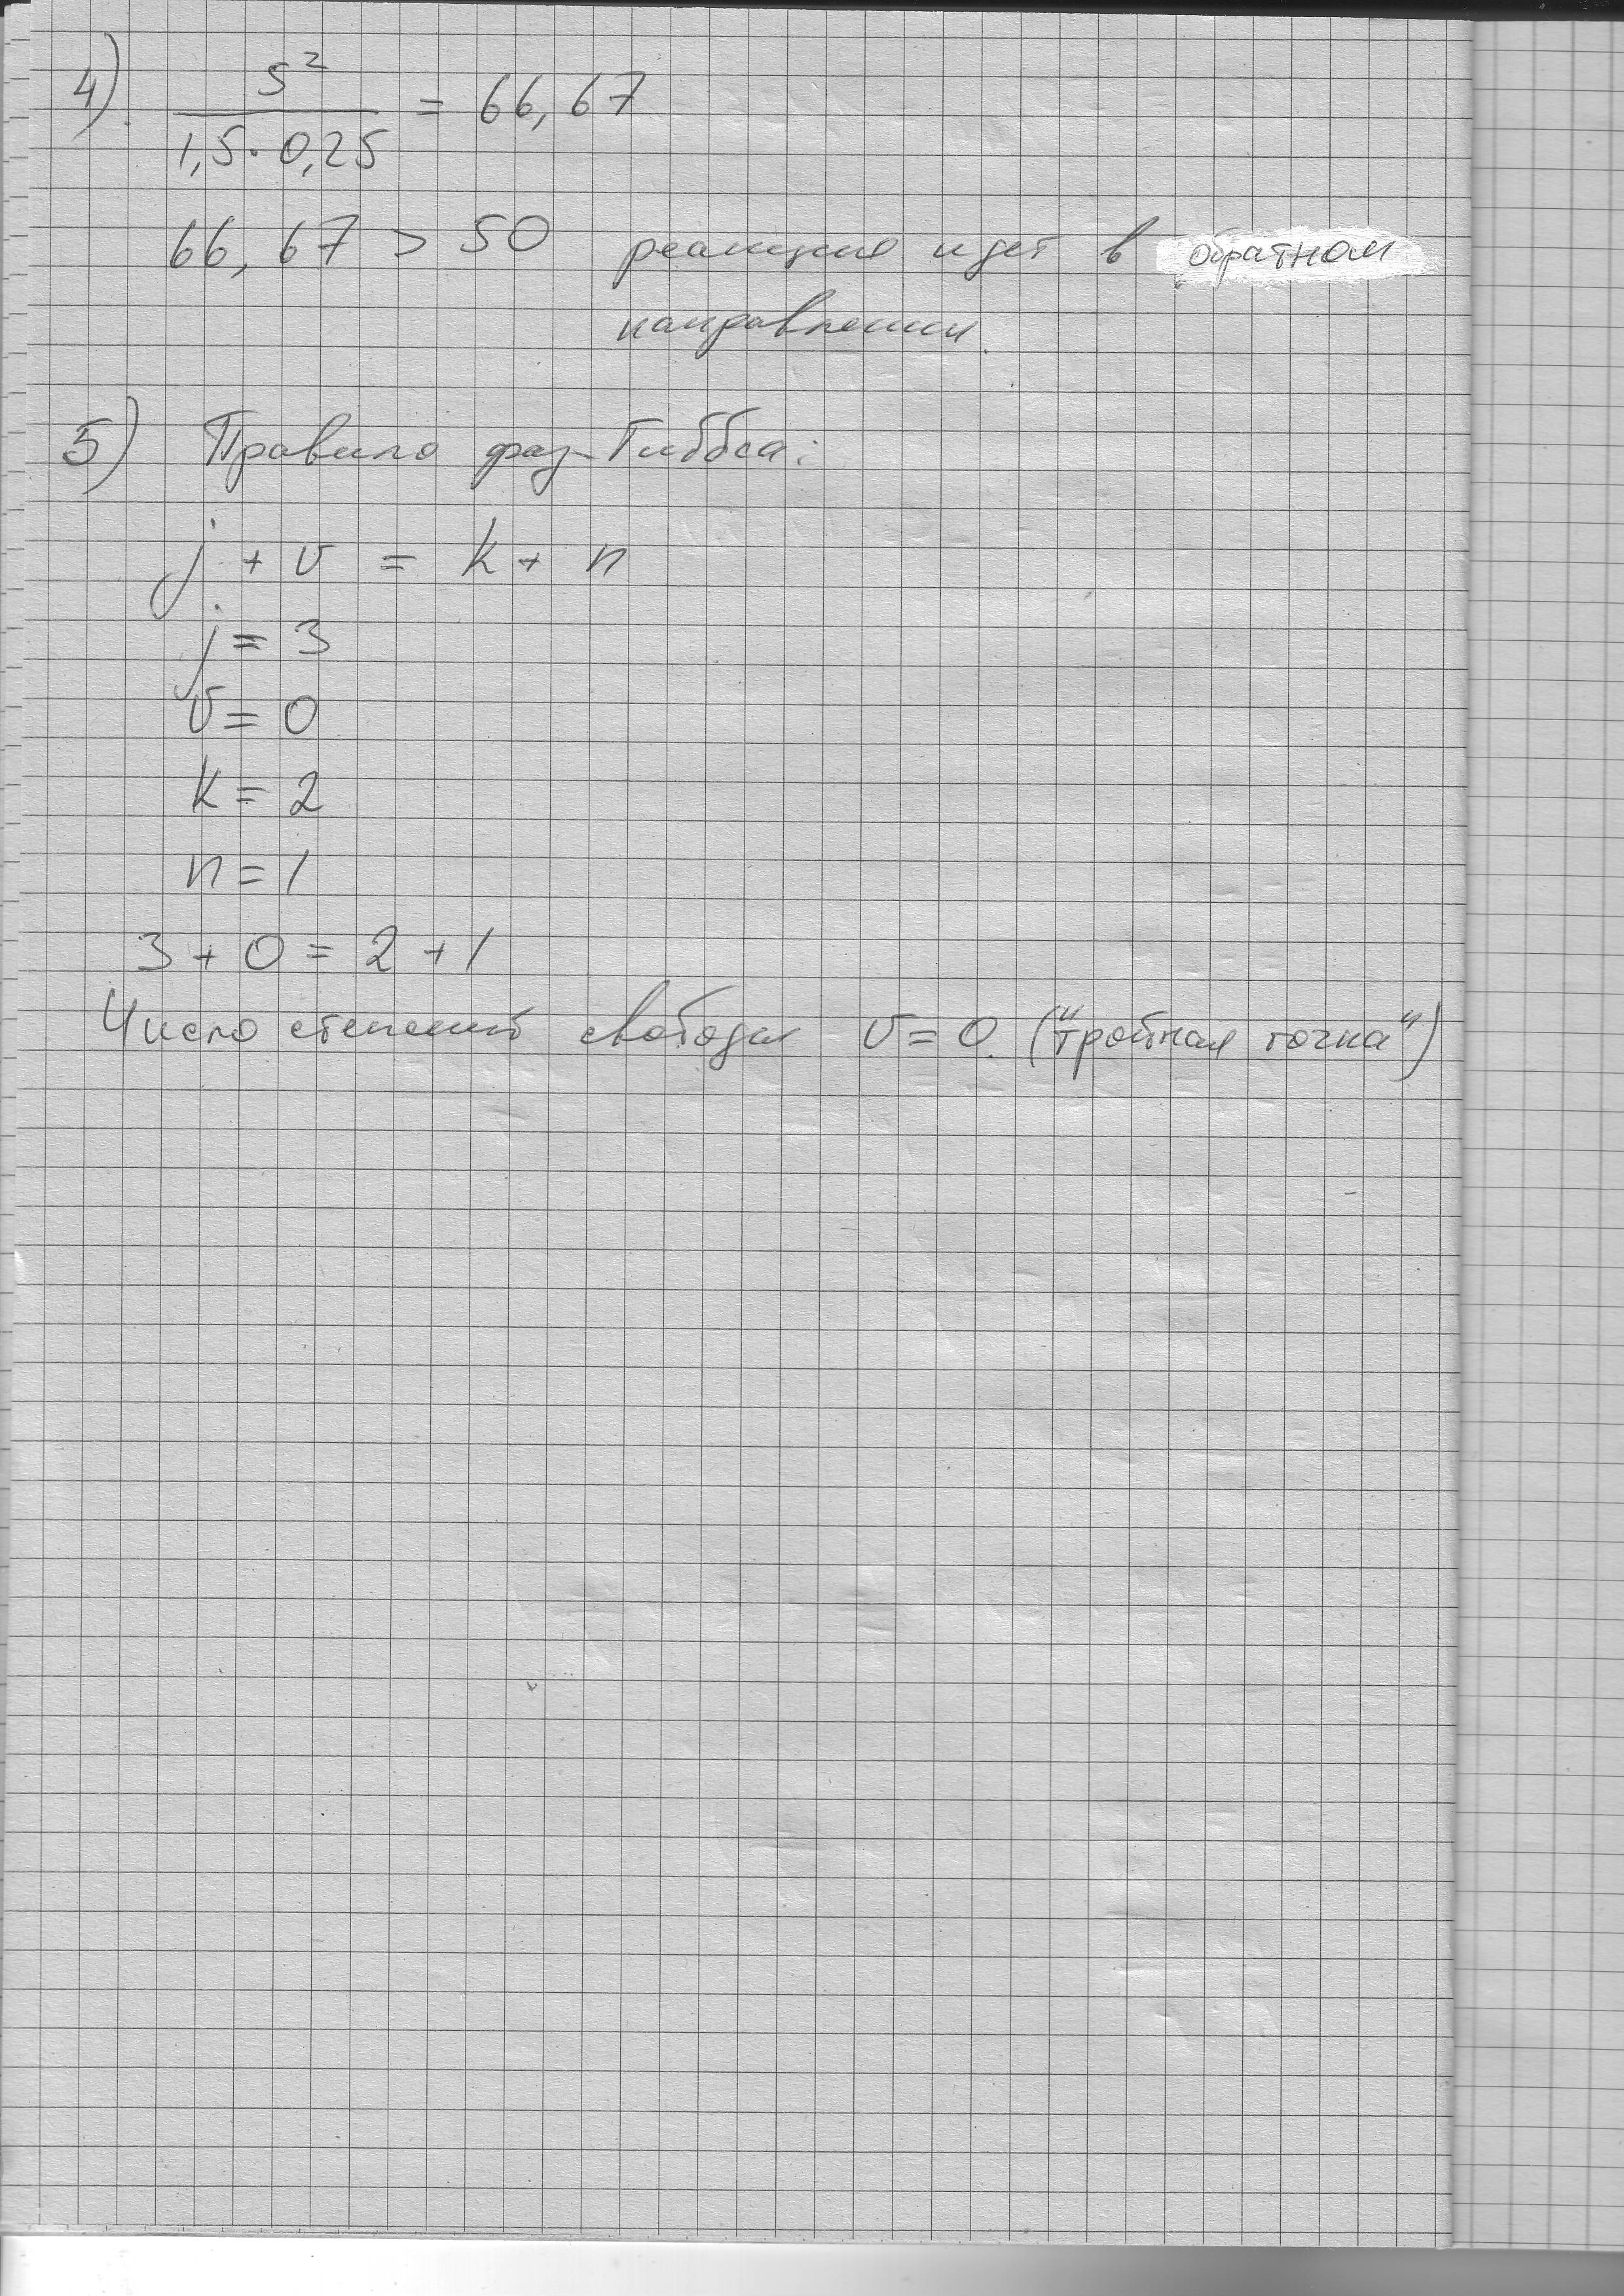 4). 5² / 1,5 · 0,25 = 66,67
66,67 > 50 реакция идет в обратном
направлении.
5) Правило фаз Гиббса:
j + v = k + n
j = 3
v = 0
k = 2
n = 1
3 + 0 = 2 + 1
Число степеней свободы v = 0. ("тройная точка")